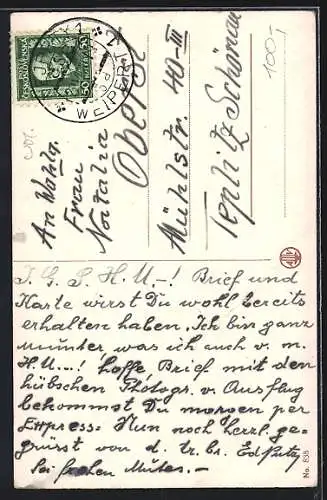 ČESKOSLOVENSKO
50 50
WEIPERT
An Wohlg.
Frau
Natalia
Oberst
Mühlstr. 40-III
Teplitz Schönau
100.-
J. G. S. H. U.-! Brief und
Karte wirst Du wohl bereits
erhalten haben. Ich bin ganz
munter was ich auch v. m.
H. U...! hoffe. Brief mit den
hübschen Photogr. v. Ausflug
bekommst Du morgen per
Express. Nun noch herzl. ge-
grüsst von d. tr. br.
Sei frohen Mutes.-
No. 635